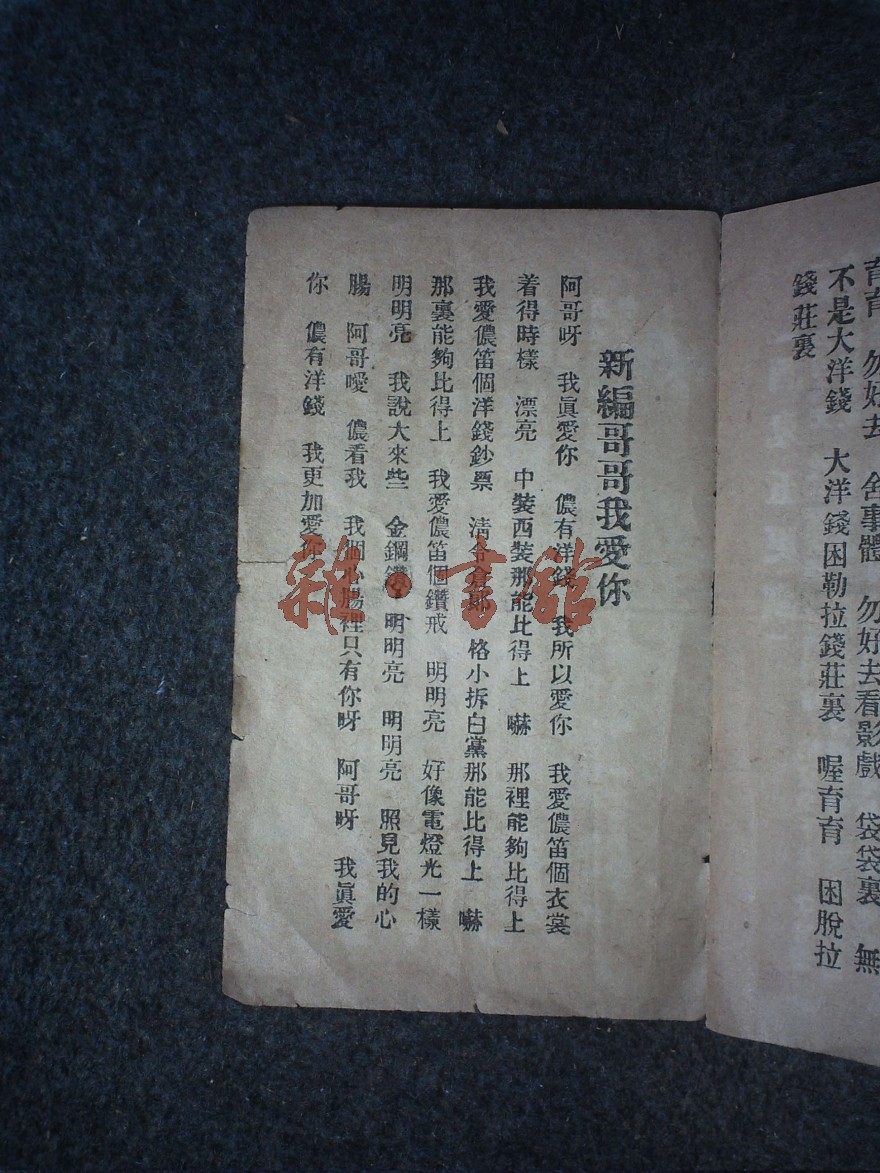 育育 勿好去 舍事體 勿好去看影戲 袋袋裏 無
不是大洋錢 大洋錢困勒拉錢莊裏 喔育育 困脫拉
錢莊裏
新編哥哥我愛你
阿哥呀 我眞愛你 儂有洋錢 我所以愛你 我愛儂笛個衣裳
着得時樣 漂亮 中裝西裝那能比得上 嚇 那裡能夠比得上
我愛儂笛個洋錢鈔票 淸 恪小拆白黨那能比得上 嚇
那裏能夠比得上 我愛儂笛個鑽戒 明明亮 好像電燈光一樣
明明亮 我說大來些 金鋼鑽 明明亮 明明亮 照見我的心
腸 阿哥噯 儂看我 我個心腸裡只有你呀 阿哥呀 我眞愛
你 儂有洋錢 我更加愛你
雜·書館